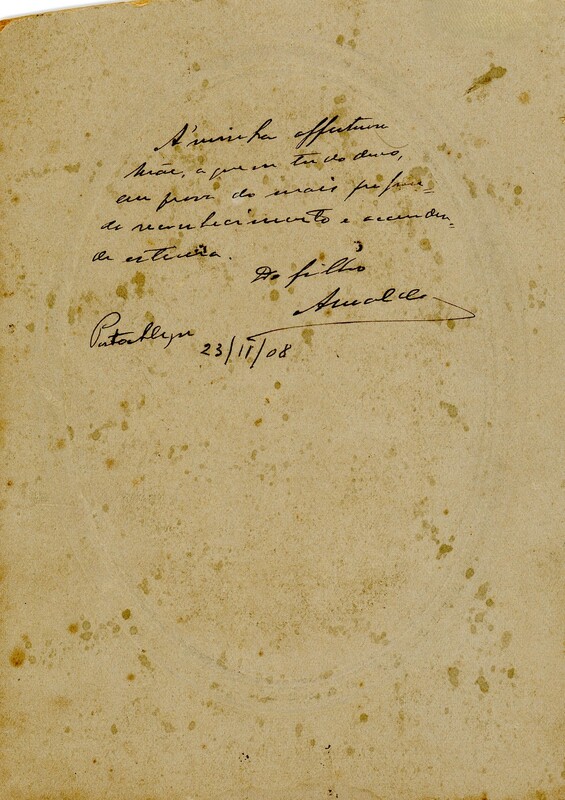 Á minha affectuosa
Mãe, a quem tudo devo,
em prova do mais profun=
do reconhecimento e accendra=
da estima.
Do filho
Arnaldo
PortoAlegre
23/II/08